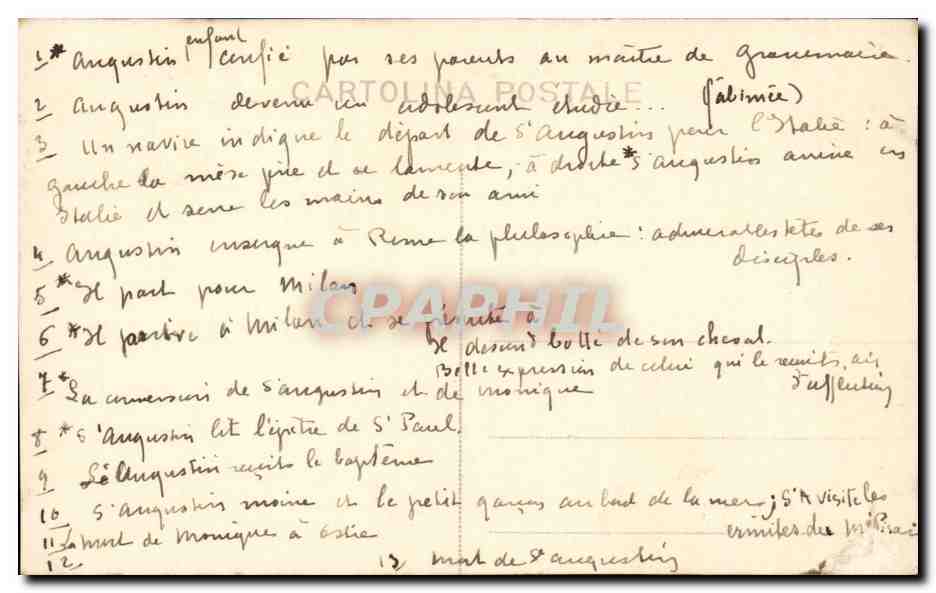 1 * Augustin enfant confié par ses parents au maître de grammaire.
CARTOLINA POSTALE
2 Augustin devenu un adolescent étudie... (abimée)
3 Un navire indique le départ de St Augustin pour l'Italie : à
gauche la mère prie et se lamente, à droite * St Augustin arrive en
Italie et serre les mains de son ami
4 Augustin enseigne à Rome la philosophie : admirables têtes de ses
disciples.
5 * Il part pour Milan
CPAPHIL
6 * Il arrive à Milan et se présente à
Il descend botté de son cheval.
Belle expression de celui qui le reçoit, air
d'affection
7 * La conversion de St Augustin et de Monique
8 * St Augustin lit l'épître de St Paul.
9 St Augustin reçoit le baptême
10 St Augustin moine et le petit garçon au bord de la mer ; St A visite les
ermites du Mt Pisan
11 La mort de Monique à Ostie
12 13 mort de St Augustin